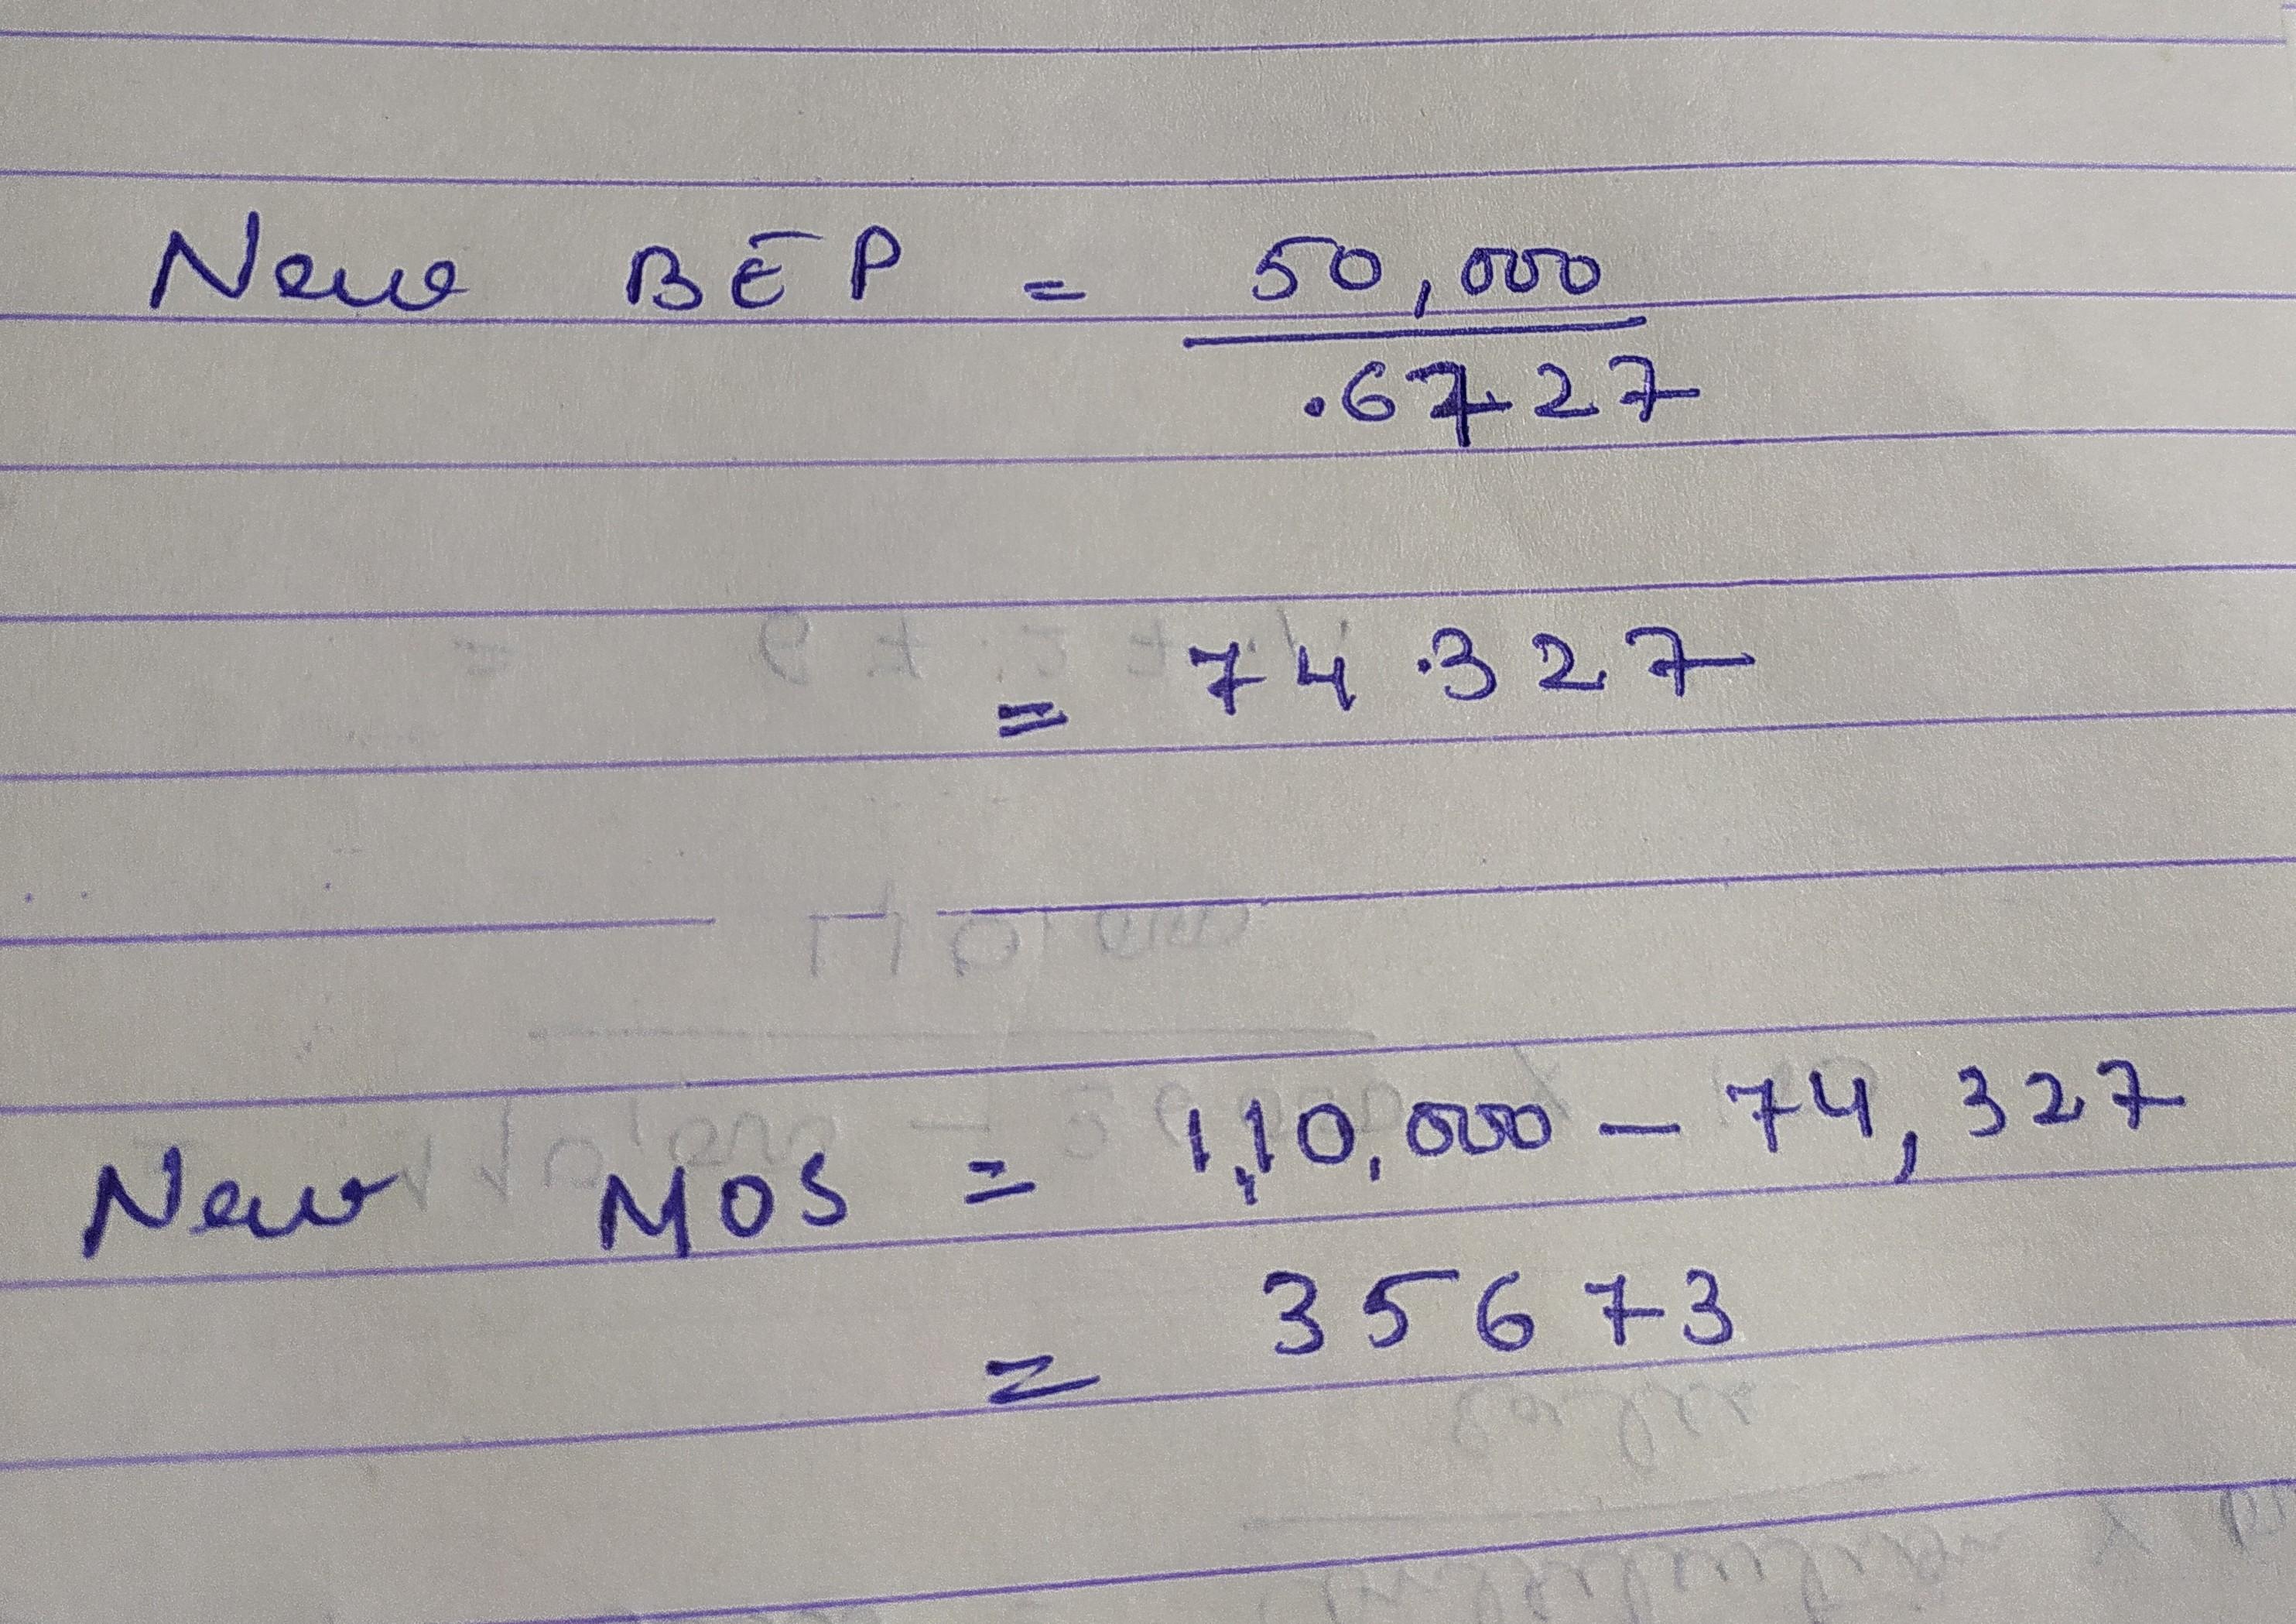 New BEP = 50,000
.6727
= 74.327
New MOS = 1,10,000 - 74,327
= 35673